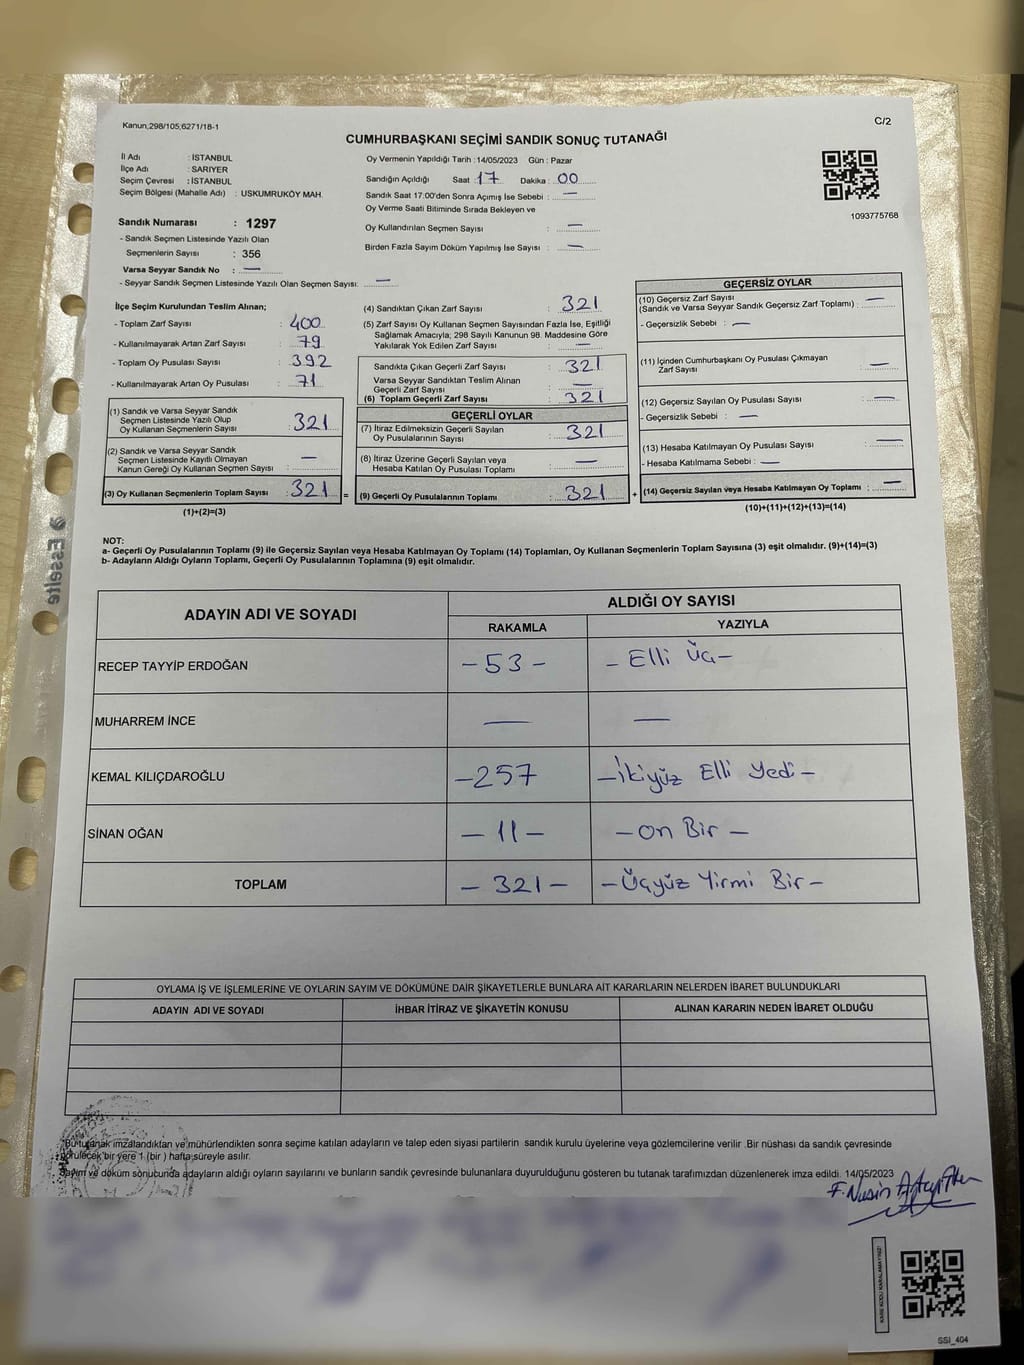 Kanun,298/105,6271/18-1
C/2
CUMHURBAŞKANI SEÇİMİ SANDIK SONUÇ TUTANAĞI
İl Adı : İSTANBUL
İlçe Adı : SARIYER
Seçim Çevresi : İSTANBUL
Seçim Bölgesi (Mahalle Adı) : USKUMRUKÖY MAH.
Sandık Numarası : 1297
- Sandık Seçmen Listesinde Yazılı Olan
Seçmenlerin Sayısı : 356
Varsa Seyyar Sandık No : —
- Seyyar Sandık Seçmen Listesinde Yazılı Olan Seçmen Sayısı: —
Oy Vermenin Yapıldığı Tarih : 14/05/2023 Gün : Pazar
Sandığın Açıldığı Saat : 17 Dakika : 00
Sandık Saat 17:00'den Sonra Açımış İse Sebebi : —
Oy Verme Saati Bitiminde Sırada Bekleyen ve
Oy Kullandırılan Seçmen Sayısı : —
Birden Fazla Sayım Döküm Yapılmış İse Sayısı : —
1093775768
İlçe Seçim Kurulundan Teslim Alınan;
- Toplam Zarf Sayısı : 400
- Kullanılmayarak Artan Zarf Sayısı : 79
- Toplam Oy Pusulası Sayısı : 392
- Kullanılmayarak Artan Oy Pusulası : 71
(1) Sandık ve Varsa Seyyar Sandık
Seçmen Listesinde Yazılı Olup
Oy Kullanan Seçmenlerin Sayısı : 321
(2) Sandık ve Varsa Seyyar Sandık
Seçmen Listesinde Kayıtlı Olmayan
Kanun Gereği Oy Kullanan Seçmen Sayısı : —
(3) Oy Kullanan Seçmenlerin Toplam Sayısı : 321 =
(1)+(2)=(3)
(4) Sandıktan Çıkan Zarf Sayısı : 321
(5) Zarf Sayısı Oy Kullanan Seçmen Sayısından Fazla İse, Eşitliği
Sağlamak Amacıyla; 298 Sayılı Kanunun 98. Maddesine Göre
Yakılarak Yok Edilen Zarf Sayısı : —
Sandıkta Çıkan Geçerli Zarf Sayısı : 321
Varsa Seyyar Sandıktan Teslim Alınan
Geçerli Zarf Sayısı : —
(6) Toplam Geçerli Zarf Sayısı : 321
GEÇERLİ OYLAR
(7) İtiraz Edilmeksizin Geçerli Sayılan
Oy Pusulalarının Sayısı : 321
(8) İtiraz Üzerine Geçerli Sayılan veya
Hesaba Katılan Oy Pusulası Toplamı : —
(9) Geçerli Oy Pusulalarının Toplamı : 321 +
GEÇERSİZ OYLAR
(10) Geçersiz Zarf Sayısı
(Sandık ve Varsa Seyyar Sandık Geçersiz Zarf Toplamı) : —
- Geçersizlik Sebebi : —
(11) İçinden Cumhurbaşkanı Oy Pusulası Çıkmayan
Zarf Sayısı : —
(12) Geçersiz Sayılan Oy Pusulası Sayısı : —
- Geçersizlik Sebebi : —
(13) Hesaba Katılmayan Oy Pusulası Sayısı : —
- Hesaba Katılmama Sebebi : —
(14) Geçersiz Sayılan veya Hesaba Katılmayan Oy Toplamı : —
(10)+(11)+(12)+(13)=(14)
NOT:
a- Geçerli Oy Pusulalarının Toplamı (9) ile Geçersiz Sayılan veya Hesaba Katılmayan Oy Toplamı (14) Toplamları, Oy Kullanan Seçmenlerin Toplam Sayısına (3) eşit olmalıdır. (9)+(14)=(3)
b- Adayların Aldığı Oyların Toplamı, Geçerli Oy Pusulalarının Toplamına (9) eşit olmalıdır.
Esselte
ADAYIN ADI VE SOYADI
ALDIĞI OY SAYISI
RAKAMLA YAZIYLA
RECEP TAYYİP ERDOĞAN - 53 - - Elli Üç -
MUHARREM İNCE — —
KEMAL KILIÇDAROĞLU - 257 - İkiyüz Elli Yedi -
SİNAN OĞAN - 11 - - on Bir -
TOPLAM - 321 - - Üçyüz Yirmi Bir -
OYLAMA İŞ VE İŞLEMLERİNE VE OYLARIN SAYIM VE DÖKÜMÜNE DAİR ŞİKAYETLERLE BUNLARA AİT KARARLARIN NELERDEN İBARET BULUNDUKLARI
ADAYIN ADI VE SOYADI İHBAR İTİRAZ VE ŞİKAYETİN KONUSU ALINAN KARARIN NEDEN İBARET OLDUĞU
Bu tutanak imzalandıktan ve mühürlendikten sonra seçime katılan adayların ve talep eden siyasi partilerin sandık kurulu üyelerine veya gözlemcilerine verilir .Bir nüshası da sandık çevresinde
görülecek bir yere 1 (bir ) hafta süreyle asılır.
Sayım ve döküm sonucunda adayların aldığı oyların sayılarını ve bunların sandık çevresinde bulunanlara duyurulduğunu gösteren bu tutanak tarafımızdan düzenlenerek imza edildi. 14/05/2023
KARE KODU KARALAMAYINIZ!
SSI_404